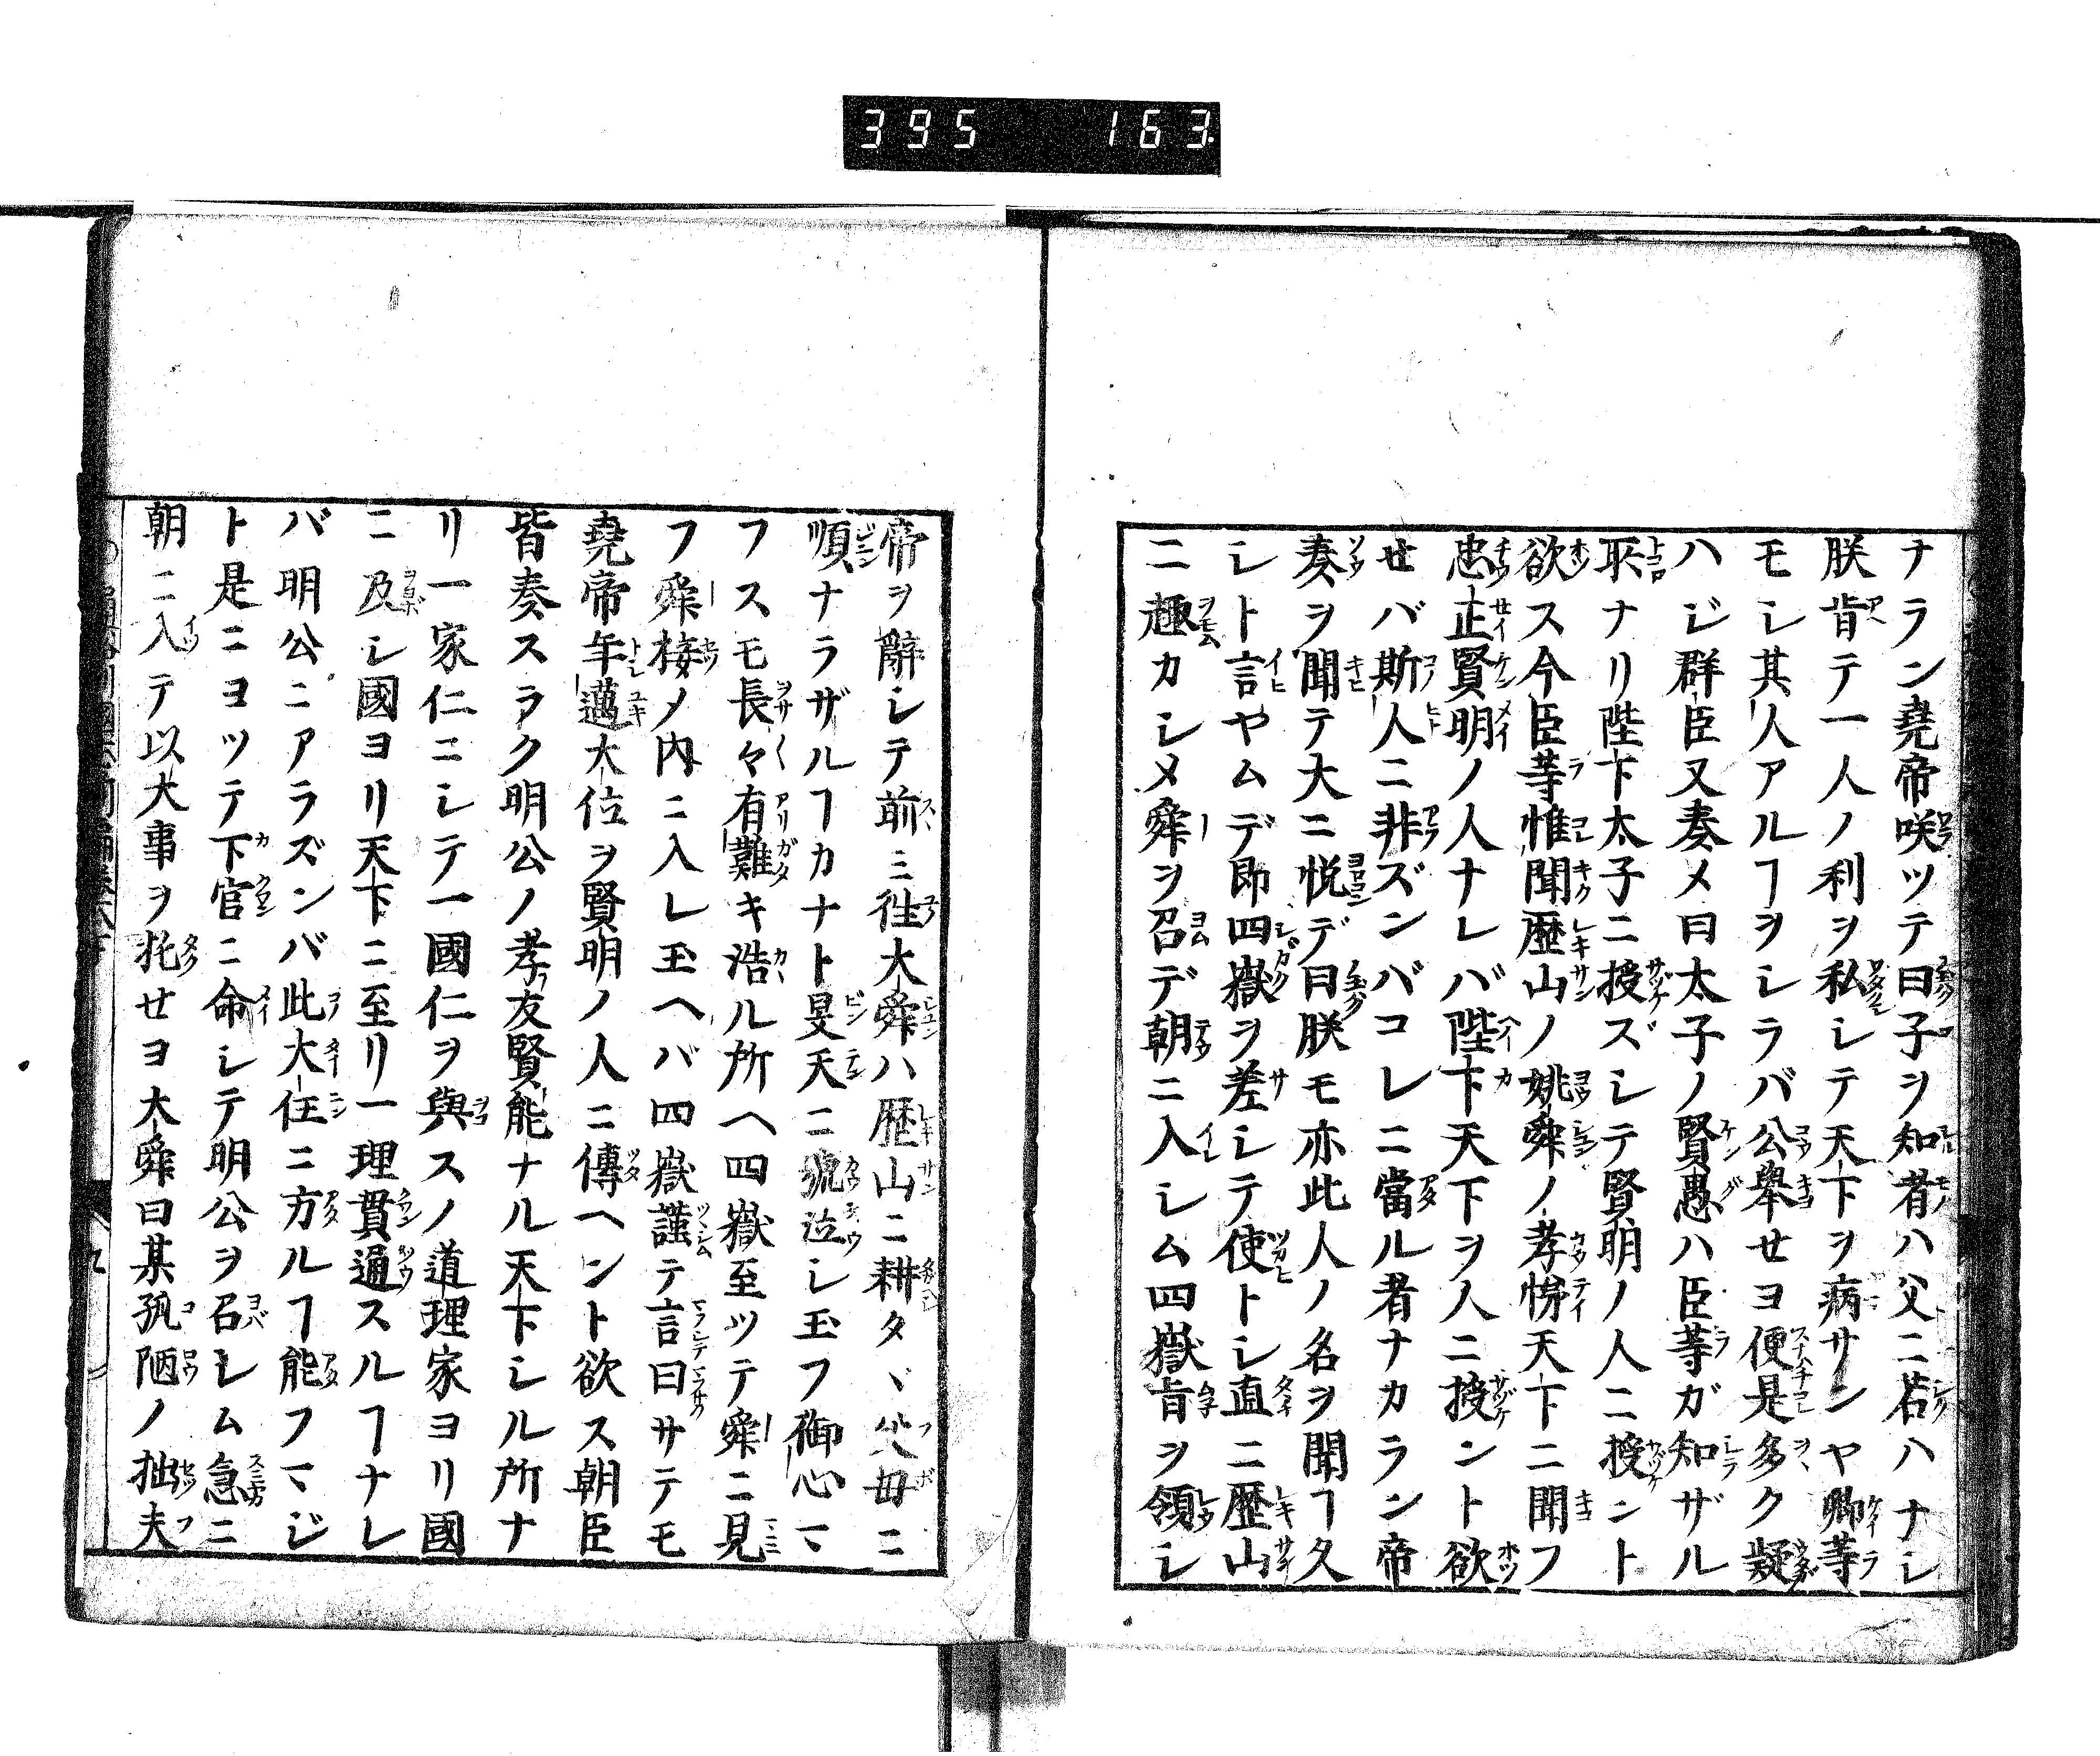 395 163
ナラン堯帝咲ツテ曰子ヲ知者ハ父ニ若ハナシ
朕肯テ一人ノ利ヲ私シテ天下ヲ病サンヤ卿等
モシ其人アルヿヲシラバ公舉セヨ便是多ク疑
ハジ群臣又奏メ曰太子ノ賢愚ハ臣等ガ知ザル
所ナリ陛下太子ニ授ズシテ賢明ノ人ニ授ント
欲ス今臣等惟聞歴山ノ姚舜ノ孝悌天下ニ聞フ
忠正賢明ノ人ナレバ陛下天下ヲ人ニ授ント欲
せバ斯人ニ非ズンバコレニ當ル者ナカラン帝
奏ヲ聞テ大ニ悦デ曰朕モ亦此人ノ名ヲ聞ヿ久
シト言ヤムデ即四嶽ヲ差シテ使トシ直ニ歴山
ニ趣カシメ舜ヲ召デ朝ニ入シム四嶽旨ヲ領シ
帝ヲ辭シテ前ミ徃大舜ハ歴山ニ耕タヽ父毋ニ
順ナラザルヿカナト旻天ニ號泣シ玉フ御心マ
フスモ長々有難キ浩ル所ヘ四嶽至ツテ舜ニ見
フ舜棲ノ内ニ入レ玉ヘバ四嶽謹テ言曰サテモ
堯帝年邁大位ヲ賢明ノ人ニ傳ヘント欲ス朝臣
皆奏スラク明公ノ孝友賢能ナル天下シル所ナ
リ一家仁ニシテ一國仁ヲ與スノ道理家ヨリ國
ニ及シ國ヨリ天下ニ至リ一理貫通スルヿナレ
バ明公ニアラズンバ此大任ニ方ルヿ能フマジ
ト是ニヨツテ下官ニ命シテ明公ヲ召シム急ニ
朝ニ入テ以大事ヲ托せヨ大舜曰某孤陋ノ拙夫